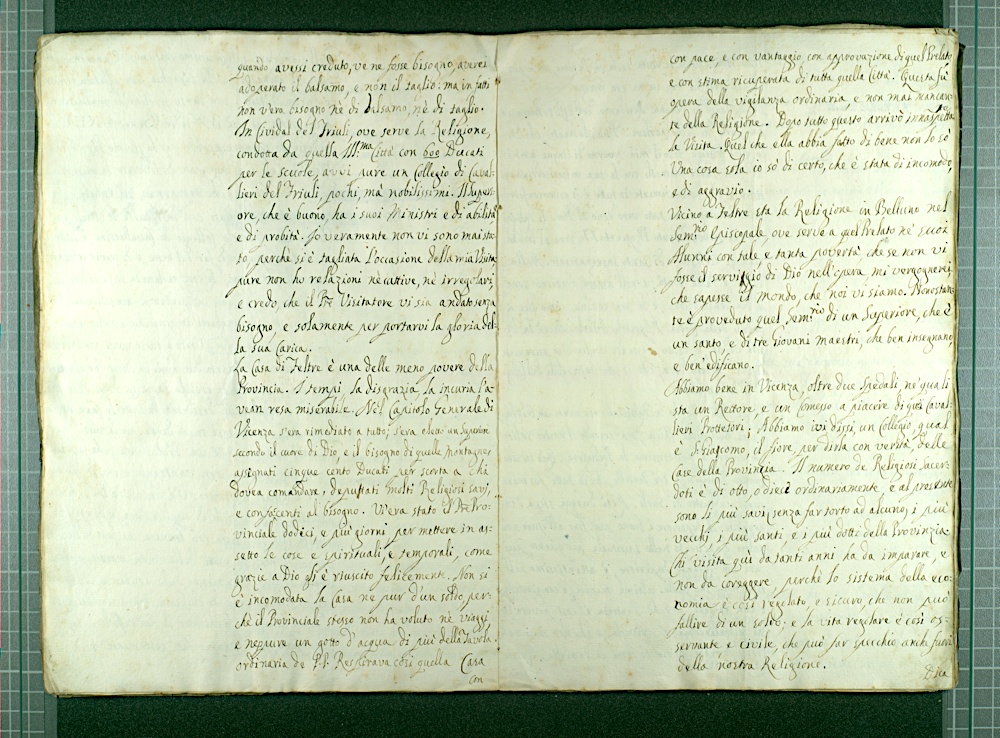 quando avessi creduto, ve ne fosse bisogno, averei
adoperato il balsamo, e non il taglio: ma in fatti
non v'era bisogno nè di balsamo, nè di taglio.
In Cividal del Friuli, ove serve la Religione,
condotta da quella Ill:ma Città con 600 Ducati
per le scuole, avvi pure un Collegio di Caval-
lieri del Friuli, pochi, mà nobilissimi. Il Superi-
ore, che è buono, ha i suoi Ministri e di abilità
e di probità. Io veramente non vi sono mai sta-
to, perchè si è tagliata l'occasione della mia Visita
pure non ho relazioni nè cattive, nè irregolari,
e credo, che il Pre Visitatore vi sia andato senza
bisogno, e solamente per portarvi la gloria del-
la sua Carica.
La Casa di Feltre è una delle meno povere della
Provincia. I tempi, la disgrazia, la incuria l'a-
vean resa miserabile. Nel Capitolo Generale di
Vicenza s'era rimediato a tutto; s'era eletto un Superiore
secondo il cuore di Dio, e il bisogno di quelle montagne,
assegnati cinque cento Ducati per scorta a chi
dovea comandare, deputati molti Religiosi savj,
e confacenti al bisogno. Vi era stato il Pre Pro-
vinciale dodeci, e più giorni per mettere in as-
setto le cose e spirituali, e temporali, come
grazie a Dio gli è riuscito felicemente. Non si
è incomodata la Casa nè pur d'un soldo, per-
chè il Provinciale stesso non ha voluto nè viaggi
e neppure un gotto d'acqua di più della Tavola
ordinaria de P.P. Respirava così quella Casa
con
con pace, e con vantaggio con approvazione di quel Prelato,
e con stima ricuperata di tutta quella Città. Questa fu
opera della vigilanza ordinaria, e non mai mancan-
te della Religione. Dopo tutto questo arrivò innaspettata
la Visita. Quel che ella abbia fatto di bene non lo sò
Una cosa sola io sò di certo, che è stata di incomodo,
e di aggravio.
Vicino a Feltre sta la Religione in Belluno nel
Sem:rio Episcopale, ove serve a quel Prelato nè suoi
Alunni con tale, e tanta povertà, che se non vi
fosse il servigio di Dio nell'opera, mi vergognerei,
che sapesse il mondo, che noi vi siamo. Nonostan-
te è proveduto quel Sem:rio di un Superiore, che è
un santo e di tre giovani maestri, che ben insegnano,
e ben edificano.
Abbiamo bene in Vicenza, oltre due spedali, nè quali
sta un Rettore, e un Comesso a piacere di quei Caval-
lieri Protettori. Abbiamo ivi dissi, un Collegio, qual
è S. Giacomo, il fiore, per dirla con verità, delle
Case della Provincia. Il numero de Religiosi Sacer-
doti è di otto, o dieci ordinariamente, e al presente
sono i più savi (senza far torto ad alcuno) i più
vecchi, i più santi, e i più dotti della Provinzia.
Chi visita quì da tanti anni ha da imparare, e
non da coreggere, perchè lo sistema della eco-
nomia è così regolato, e sicuro, che non può
fallire di un soldo: e la vita regolare è così os-
servante e civile, che può far specchio anch fuori
della nostra Religione.